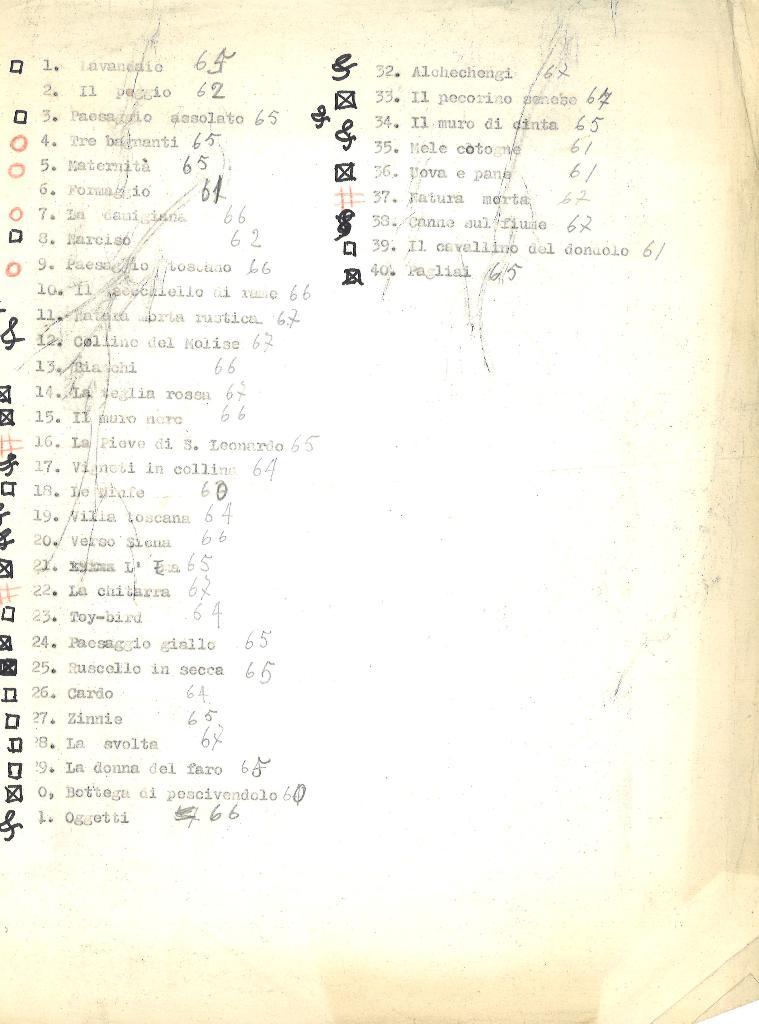 1. Lavandaie 65
2. Il poggio 62
3. Paesaggio assolato 65
4. Tre bagnanti 65
5. Maternità 65
6. Formaggio 61
7. La 66
8. Narciso 62
9. Paesaggio toscano 66
10. Il secchiello di rame 66
11. Natura morta rustica 67
12. Colline del Molise 67
13. Bianchi 66
14. La teglia rossa 67
15. Il muro nero 66
16. La Pieve di S. Leonardo 65
17. Vigneti in collina 64
18. Le 60
19. Villa toscana 64
20. Verso Siena 66
21. L' 65
22. La chitarra 67
23. Toy-bird 64
24. Paesaggio giallo 65
25. Ruscello in secca 65
26. Cardo 64
27. Zinnie 65
28. La svolta 67
29. La donna del faro 65
0, Bottega di pescivendolo 60
1. Oggetti 66
32. Alchechengi 67
33. Il pecorino senese 67
34. Il muro di cinta 65
35. Mele cotogne 61
36. Uova e pane 61
37. Natura morta 67
38. Canne sul fiume 67
39. Il cavallino del dondolo 61
40. Pagliai 65